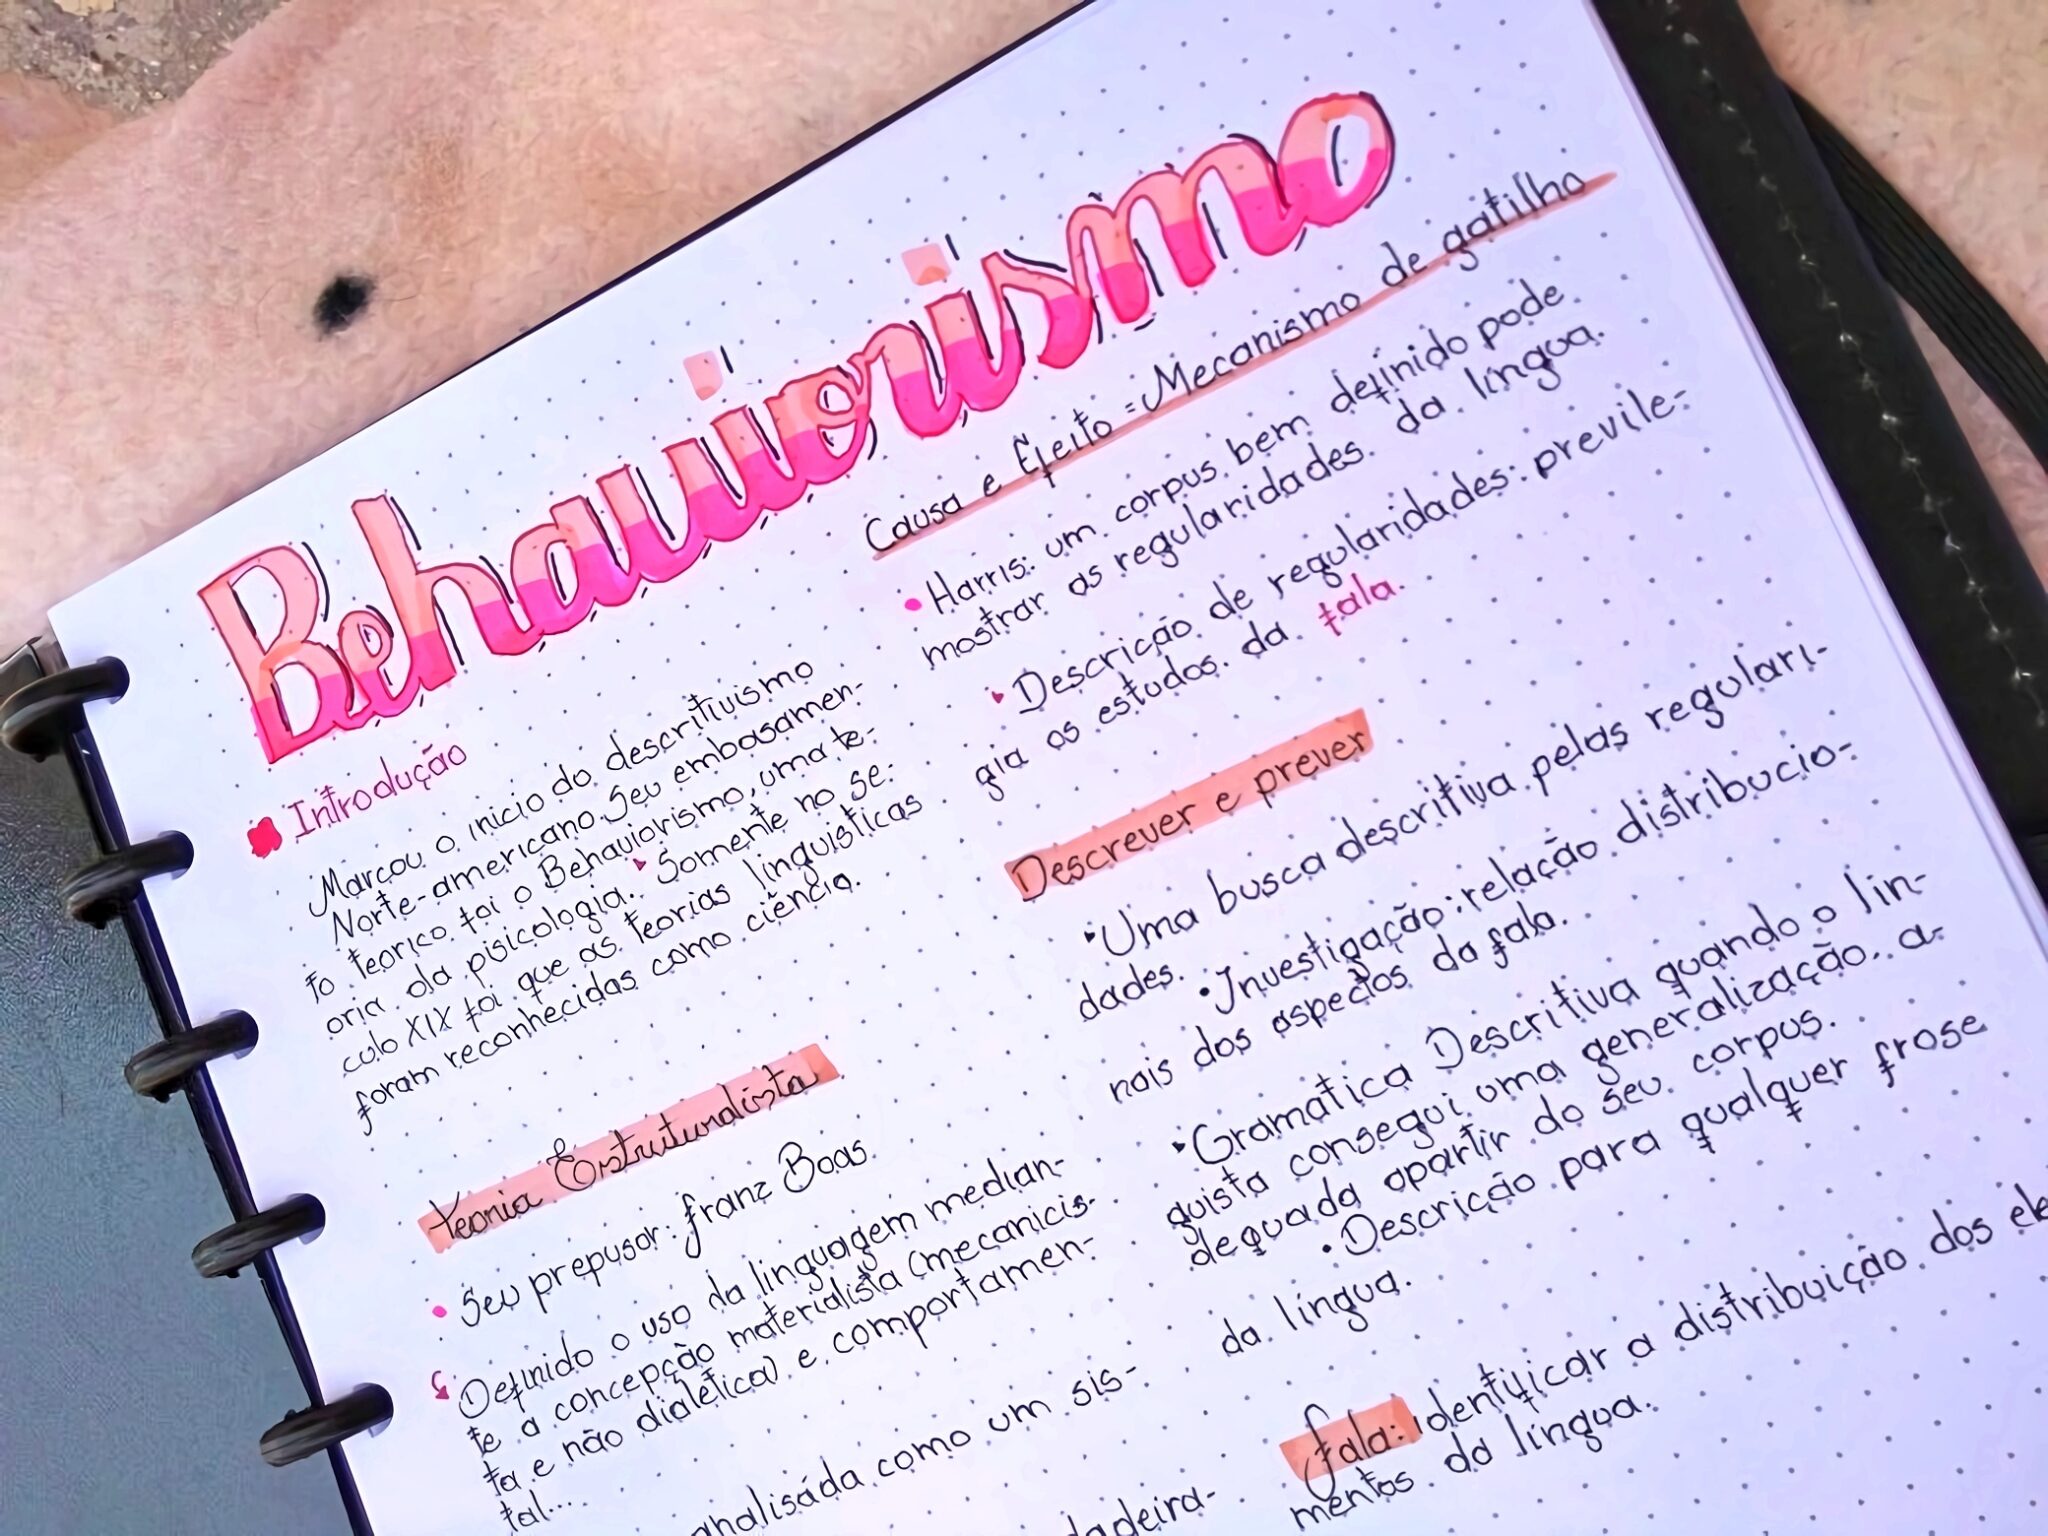 Behaviorismo
Introdução
Marcou o inicio do descritivismo
Norte-americano. Seu embasamen-
to teorico foi o Behaviorismo, uma te-
oria da pisicologia. Somente no se-
culo XIX foi que as teorias linguisticas
foram reconhecidas como ciência.
teoria Estruturalista
Seu prepusor: franz Boas
Definido o uso da linguagem median-
te a concepção materialista (mecanicis-
ta e não dialética) e comportamen-
tal...
analisáda como um sis-
dadeira-
Causa e Efeito = Mecanismo de gatilho
Harris: um corpus bem definido pode
mostrar as regularidades da língua.
Descrição de regularidades: previle-
gia os estudos da fala.
Descrever e prever
Uma busca descritiva pelas regulari-
dades. • Investigação: relação distribucio-
nais dos aspectos da fala.
Gramatica Descritiva quando o lin-
guista consegui uma generalização a-
dequada apartir do seu corpus.
• Descrição para qualquer frase
da língua.
fala: identificar a distribuição dos ele
mentos da língua.